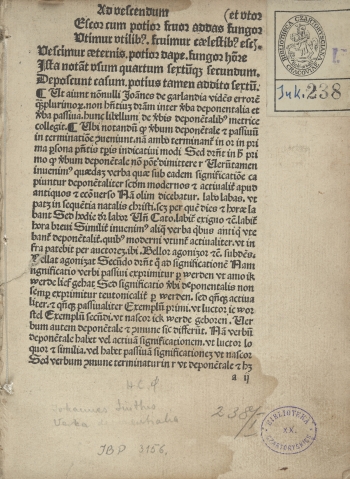 Ad vescendum (et vtor
Escor cum potior fruor addas fungor
Utimur vtilibꝰ. fruimur cælestibꝰ esca.
Vescimur æternis. potior dape. fungor hōre
Ista notāt vsum quartum sextūqꝫ secundum.
Deposcunt casum. potius tamen addito sextū.
Ut aiunt nōnulli Joannes de garlandia vidēs errorē
qꝫplurimoꝝ. non hñtiuꝫ drām inter ꝟba deponentalia et
ꝟba passiua. hunc libellum de ꝟbis deponētalibꝰ metrice
collegit. Ubi notandū ꝙ ꝟbum deponētale et passiuū
in terminatiōe
ma ꝑsona pñtis tꝑis indicatiui modi Sed drñt in
mo ꝙ ꝟbum deponētale nō
inuenimꝰ quædaꝫ verba quæ sub eadem significatiōe ca
piuntur deponētaliter scdm modernos et actiualiꝰ apud
antiquos et ecōuerso Nā olim dicebatur. labo labas. vt
patꝫ in sequētia natalis christi. seꝫ per quē dies et horæ la
bant Sed hodie dꝛ labor Uñ Cato. labitꝰ
hora breui Similiꝰ inuenimꝰ aliq̃ verba qbus antiq vte
bantꝰ deponētaliꝰ. quibꝰ moderni vtunꝰ actiualiter. vt in
fra patebit per auctores. ibi. Bellor agonizor
Bellat agonizat Secūdo drñt ꝙ ad significatiōem Nam
significatio verbi passiui exprimitur ꝑ werden vt amo ik
werde lief gehat Sed significatio ꝟbi deponentalis non
semꝑ exprimitur teutonicaliꝰ ꝑ werden. sed qñqꝫ actiua
liter. et qñqꝫ passiualiter Exemplū primi. vt luctor ic wor
stel Exemplū secūdi. vt nascor ick werde geboren. Uer
bum autem deponētale et cōmune sic differūt. Nā verbū
deponētale habet vel actiuā significationem. vt luctor lo
quor et similia. vel habet passiuā significationeꝫ vt nascor
Sed verbum cōmune terminatur in r vt deponētale et hꝫ
a ij
BIBLIOTECA
Ink. 238
238
JBP 3156.
BIBLIOTEKA
XX.